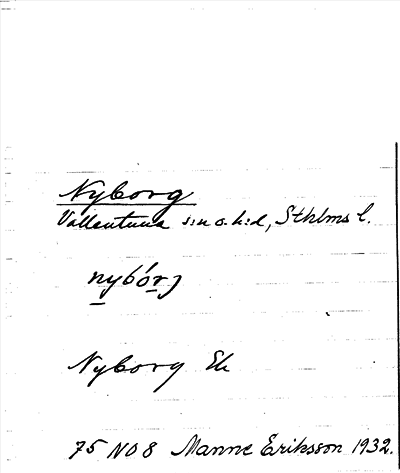 Nyborg
Vallentuna s:n o. h:d, Sthlms l.
nybórj
Nyborg Ek
75 NO 8 Manne Eriksson 1932.